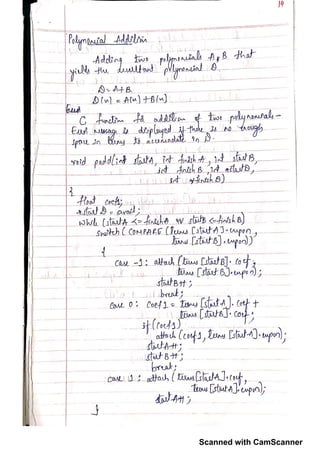 Polynomial Addition
Adding two polynomials A, B that
yields the resultant polynomial D.
D = A+B
D(x) = A(x) + B(x)
C function for addition of two polynomials -
Error message is displayed if there is no enough
space in terms to accomodate in D.
void padd(int startA, int finish A, int start B,
int finish B, int *startD,
int *finish D)
{
float coeff;
*start D = avail;
while (startA <= finishA && startB <= finishB)
switch ( COMPARE (terms [start A].expon,
terms [start B].expon))
{
case -1: attach (terms [startB].coef,
terms [start B].expon);
startB++;
break;
case 0: Coeff1 = terms [startA].coef +
terms [start B].coef;
if (coeff1)
attach (coeff1, terms [startA].expon);
startA++;
start B++;
break;
case 1: attach (terms [startA].coef,
terms [startA].expon);
startA++;
}
Scanned with CamScanner